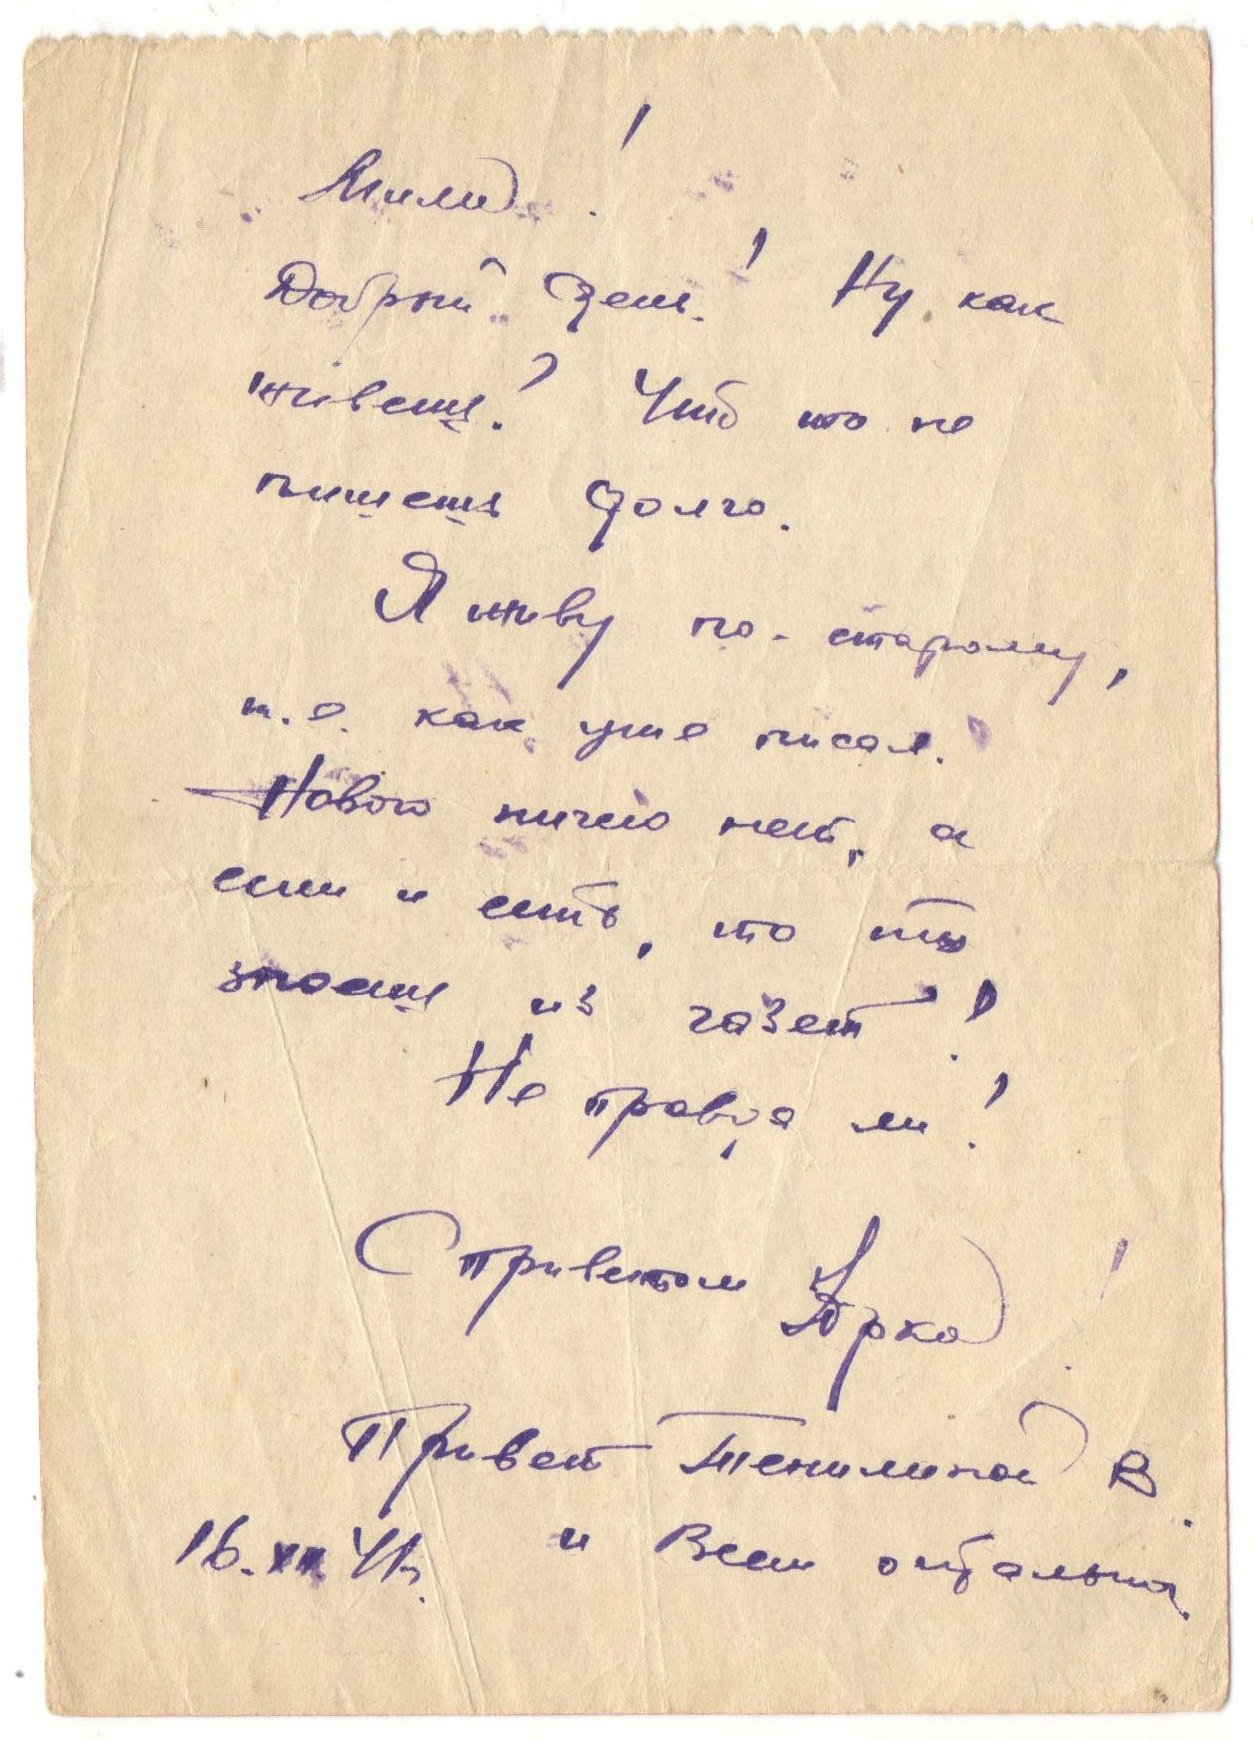 Мила!
Добрый день! Ну как
живешь? Что то не
пишешь долго.
Я живу по-старому,
т.е. как уже писал.
Нового ничего нет, а
если и есть, то ты
знаешь из газет!
Не правда ли!
С приветом
Привет В.
и Всем остальным.
16.XII 41г.